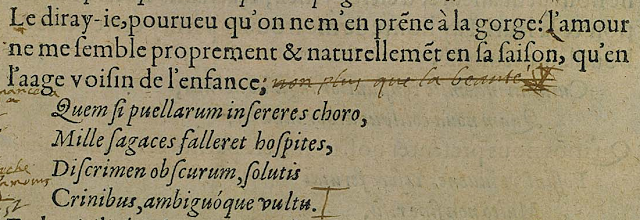 Le diray-ie, pourueu qu'on ne m'en prẽne à la gorge: l'amour
ne me ſemble proprement & naturellemẽt en ſa ſaiſon, qu'en
l'aage voiſin de l'enfance, non plus que la beauté
Quem ſi puellarum inſereres choro,
Mille ſagaces falleret hoſpites,
Diſcrimen obſcurum, ſolutis
Crinibus, ambiguóque vultu.